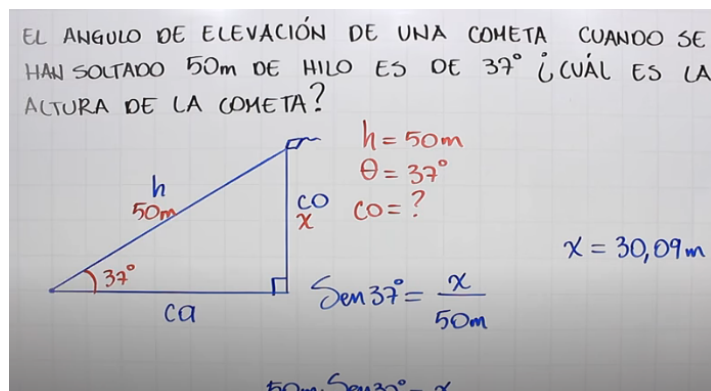 EL ANGULO DE ELEVACIÓN DE UNA COMETA CUANDO SE
HAN SOLTADO 50m DE HILO ES DE 37° ¿CUÁL ES LA
ALTURA DE LA COMETA?
h = 50m
θ = 37°
co = ?
h
50m
co
x
37°
ca
x = 30,09m
Sen 37° = x
50m